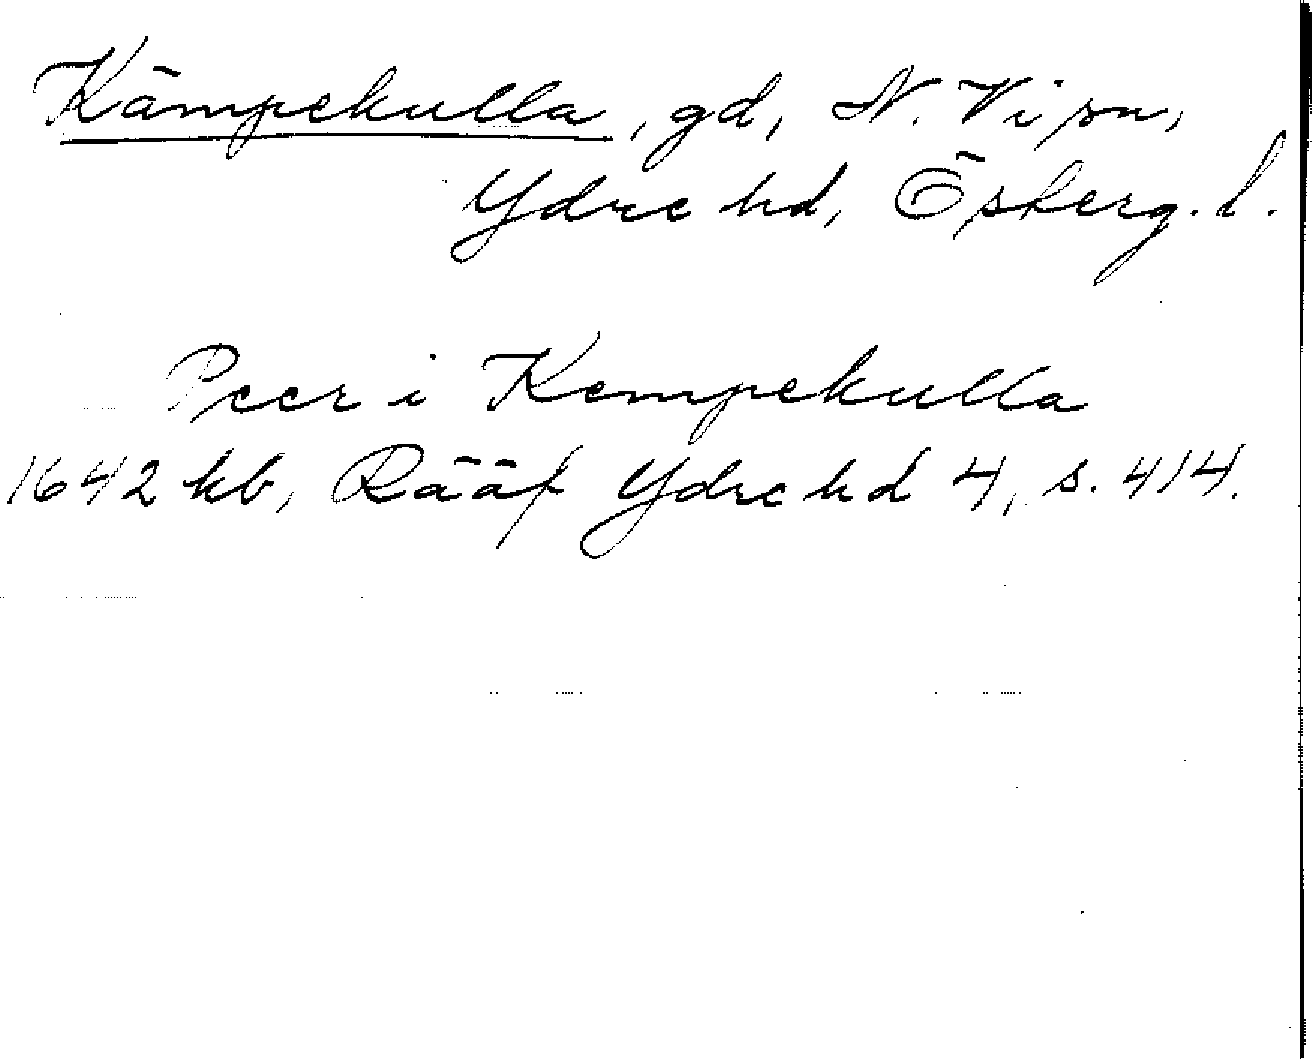 Kämpekulla, gd, N. Vi sn,
Ydre hd, Östergl. l.
Peer i Kempekulla
1642 kb, Rääf Ydre hd 4, s. 414.